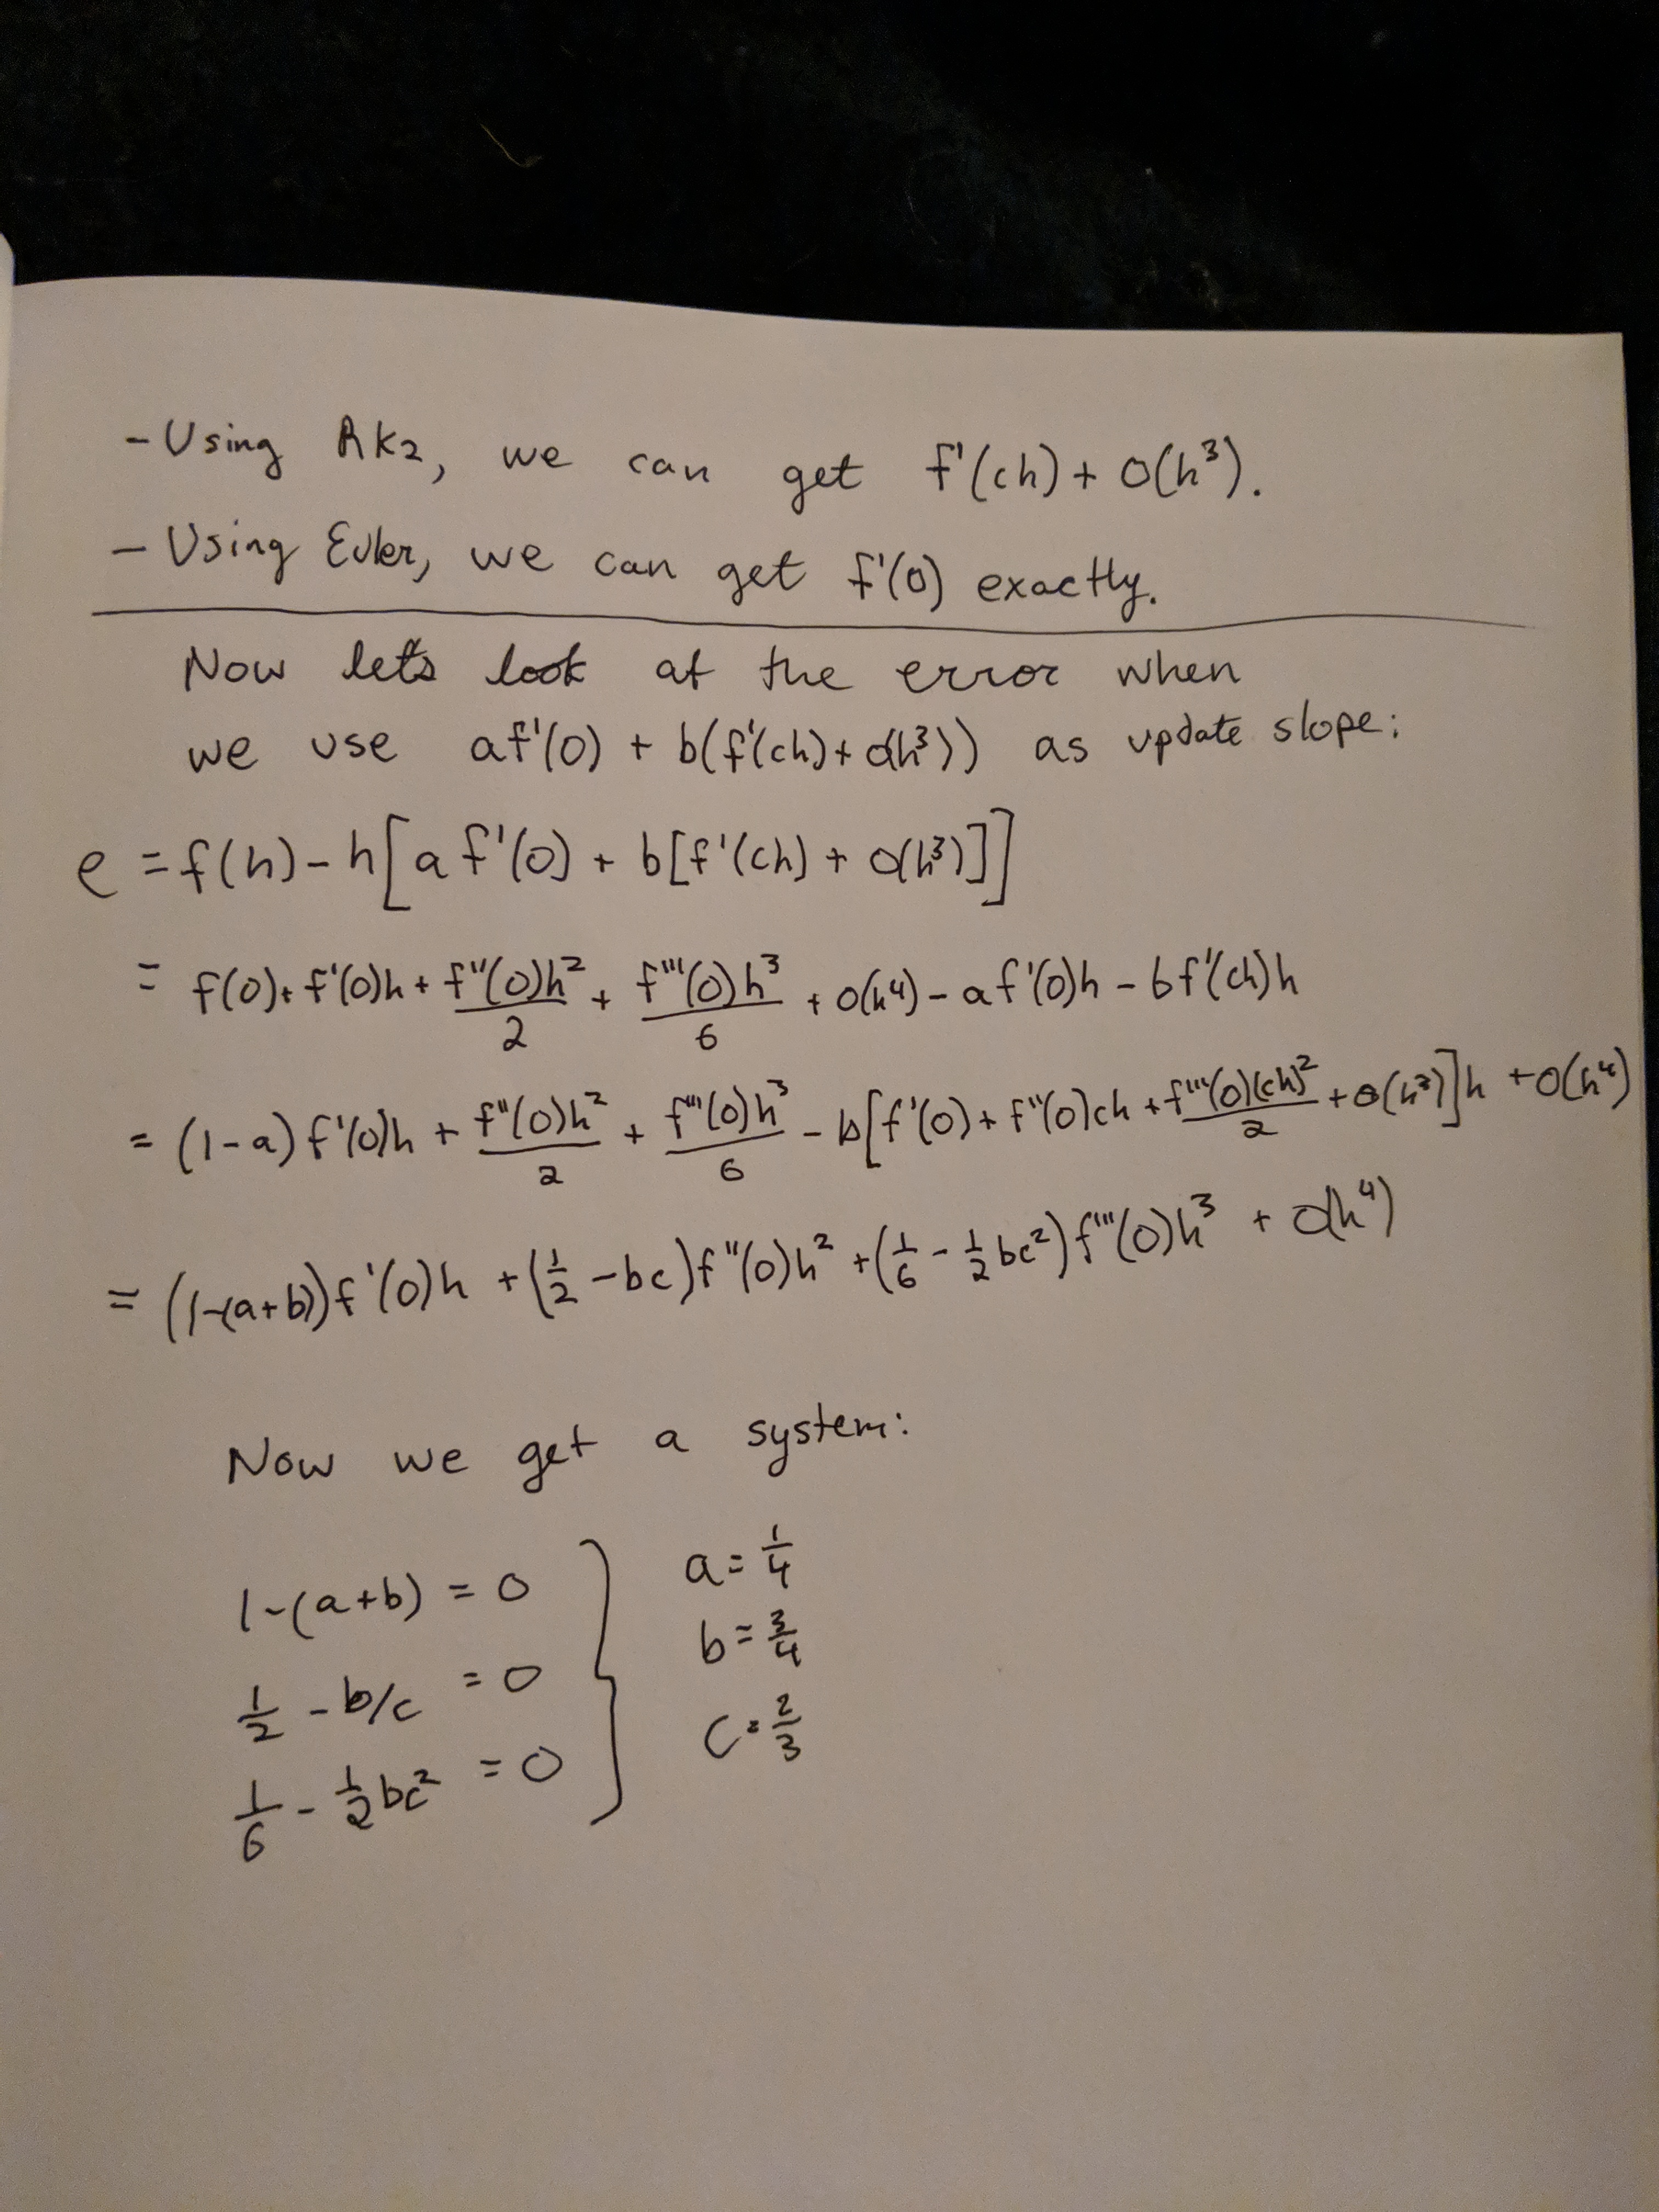 - Using RK2, we can get f'(ch) + O(h³).
- Using Euler, we can get f'(0) exactly.
Now let's look at the error when
we use af'(0) + b(f'(ch) + O(h³)) as update slope:
e = f(h) - h[a f'(0) + b[f'(ch) + O(h³)]]
= f(0) + f'(0)h + f''(0)h²/2 + f'''(0)h³/6 + O(h⁴) - a f'(0)h - b f'(ch)h
= (1-a) f'(0)h + f''(0)h²/2 + f'''(0)h³/6 - b[f'(0) + f''(0)ch + f'''(0)(ch)²/2 + O(h³)]h + O(h⁴)
= (1-(a+b))f'(0)h + (1/2 - bc)f''(0)h² + (1/6 - 1/2 bc²)f'''(0)h³ + O(h⁴)
Now we get a system:
1-(a+b) = 0
1/2 - b/c = 0
1/6 - 1/2 bc² = 0
a = 1/4
b = 3/4
c = 2/3